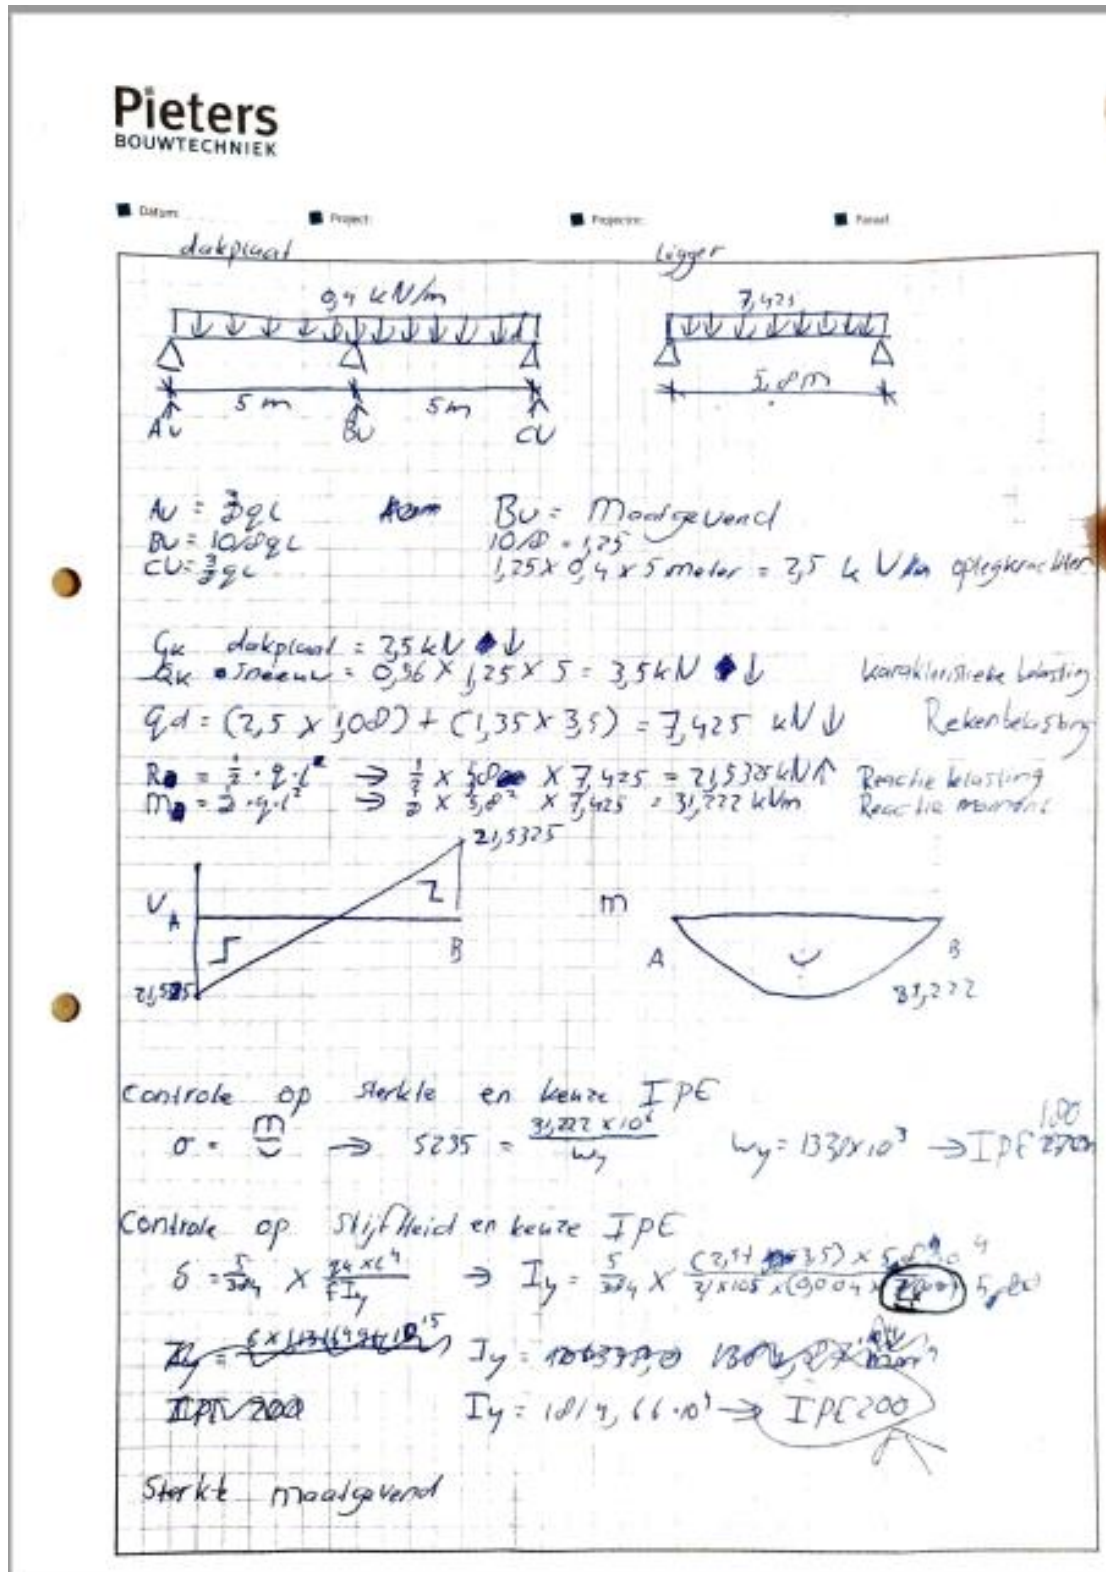 Pieters
BOUWTECHNIEK
Datum: Project: Projectnr.: Paraaf:
dakplaat Ligger
0,4 kN/m 7,425
5 m 5 m 5,8 m
Av Bv Cv
Av = qL Bv = Maatgevend
Bv = 10/8 qL 10/8 = 1,25
Cv = qL 1,25 x 0,4 x 5 meter = 2,5 k oplegkrachten
Gk dakplaat = 2,5 kN ↓
Qk sneeuw = 0,56 x 1,25 x 5 = 3,5 kN ↓ karakteristieke belasting
qd = (2,5 x 1,08) + (1,35 x 3,5) = 7,425 kN ↓ Rekenbelasting
R = 1/2 · q · l → 1/2 x 5,8 x 7,425 = 21,5325 kN ↑ Reactie belasting
M = · q · l² → x 5,8² x 7,425 = 31,222 kNm Reactie moment
21,5325
V A B M A B
31,222
Controle op sterkte en keuze IPE
σ = M → S235 = 31,222 x 10⁶ / Wy Wy = x 10³ → IPE 180
Controle op stijfheid en keuze IPE
δ = 5/384 x → Iy = 5/384 x
Iy =
IPE 200 Iy = 1814,66 · 10⁴ → IPE 200
Sterkte maatgevend